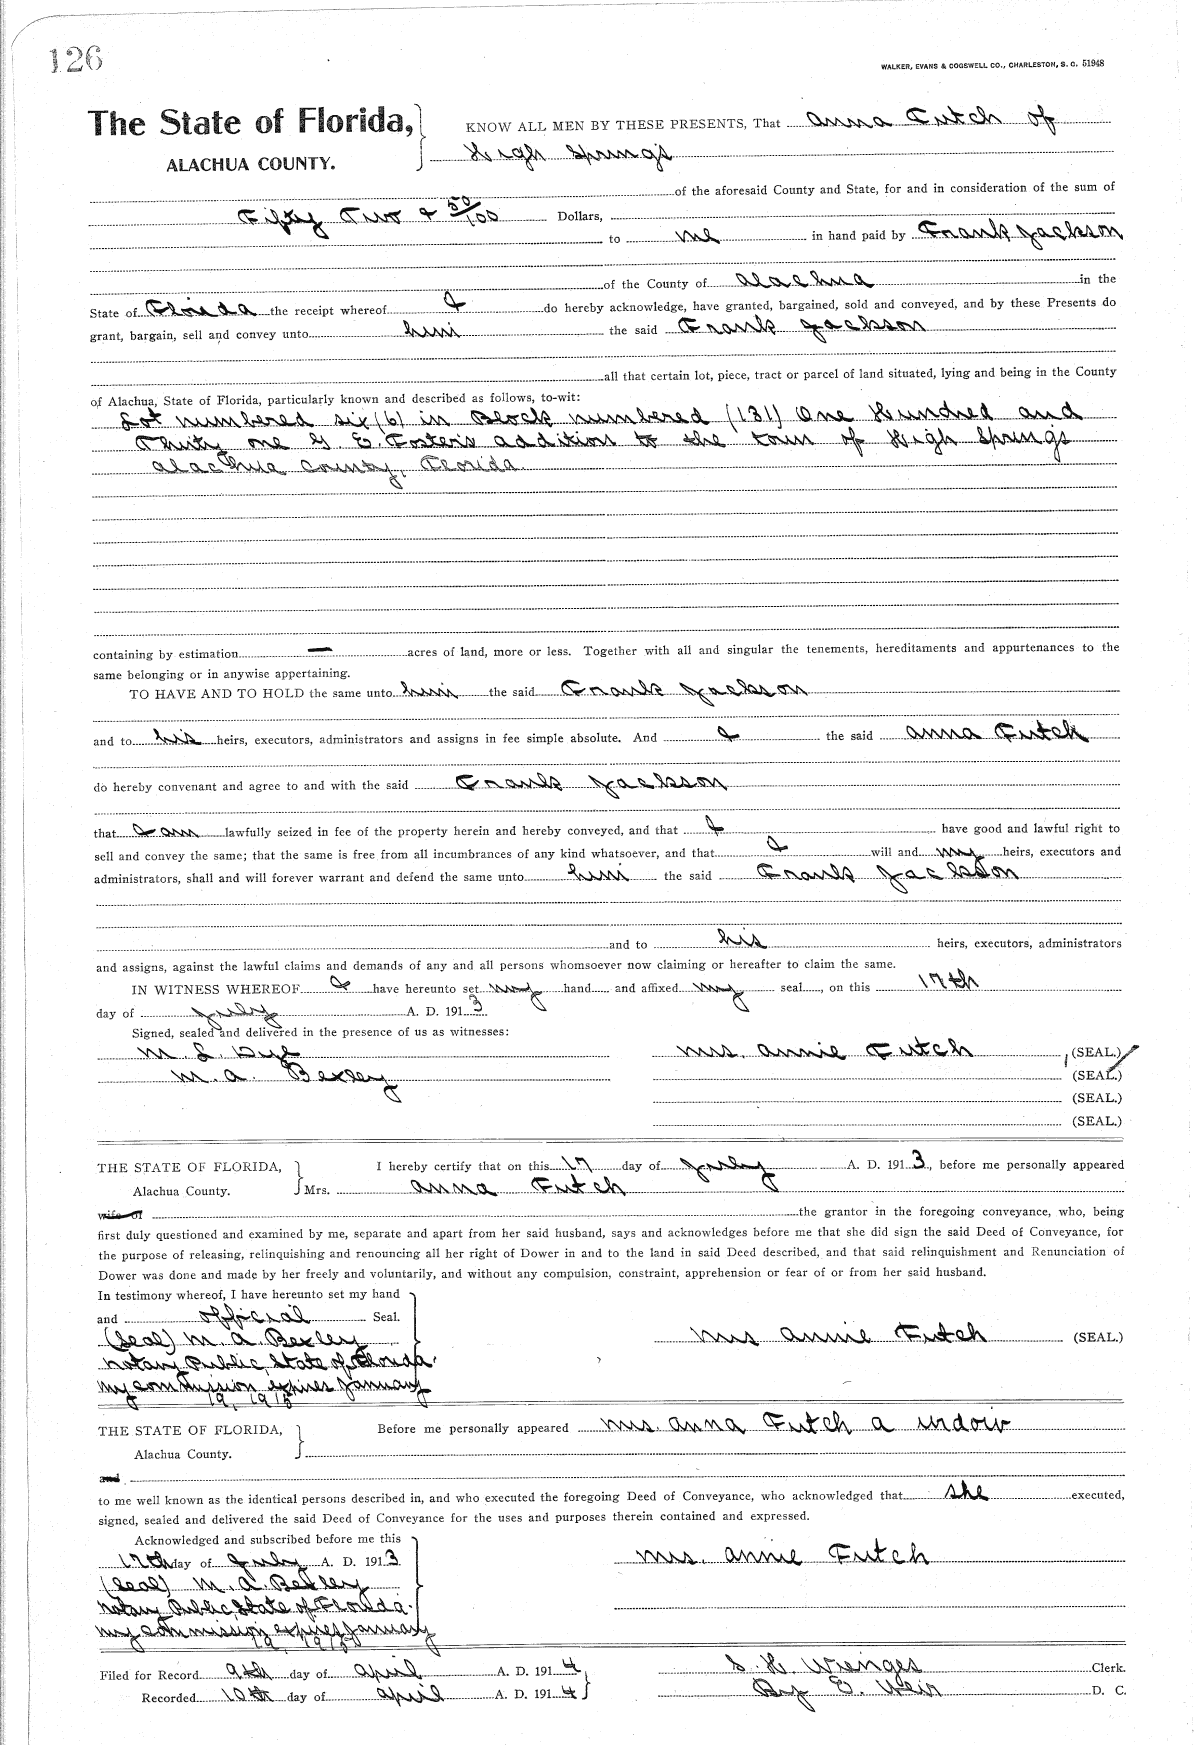 126
WALKER, EVANS & COGSWELL CO., CHARLESTON, S. C. 51948
The State of Florida,
ALACHUA COUNTY.
KNOW ALL MEN BY THESE PRESENTS, That Anna Futch of
High Springs
of the aforesaid County and State, for and in consideration of the sum of
Fifty Two & 50/100 Dollars,
to me in hand paid by Frank Jackson
of the County of Alachua in the
State of Florida the receipt whereof I do hereby acknowledge, have granted, bargained, sold and conveyed, and by these Presents do
grant, bargain, sell and convey unto him the said Frank Jackson
all that certain lot, piece, tract or parcel of land situated, lying and being in the County
of Alachua, State of Florida, particularly known and described as follows, to-wit:
Lot numbered six (6) in Block numbered (131) One Hundred and
Thirty one G E Foster's addition to the town of High Springs
Alachua County, Florida.
containing by estimation — acres of land, more or less. Together with all and singular the tenements, hereditaments and appurtenances to the
same belonging or in anywise appertaining.
TO HAVE AND TO HOLD the same unto him the said Frank Jackson
and to his heirs, executors, administrators and assigns in fee simple absolute. And I the said Anna Futch
do hereby convenant and agree to and with the said Frank Jackson
that I am lawfully seized in fee of the property herein and hereby conveyed, and that I have good and lawful right to
sell and convey the same; that the same is free from all incumbrances of any kind whatsoever, and that I will and my heirs, executors and
administrators, shall and will forever warrant and defend the same unto him the said Frank Jackson
and to his heirs, executors, administrators
and assigns, against the lawful claims and demands of any and all persons whomsoever now claiming or hereafter to claim the same.
IN WITNESS WHEREOF I have hereunto set my hand and affixed my seal, on this 17th
day of July A. D. 1913.
Signed, sealed and delivered in the presence of us as witnesses:
M. L. Dye Mrs. Annie Futch (SEAL.)
M. A. Bexley (SEAL.)
(SEAL.)
(SEAL.)
THE STATE OF FLORIDA, I hereby certify that on this 17 day of July A. D. 1913, before me personally appeared
Alachua County. Mrs. Anna Futch
wife of the grantor in the foregoing conveyance, who, being
first duly questioned and examined by me, separate and apart from her said husband, says and acknowledges before me that she did sign the said Deed of Conveyance, for
the purpose of releasing, relinquishing and renouncing all her right of Dower in and to the land in said Deed described, and that said relinquishment and Renunciation of
Dower was done and made by her freely and voluntarily, and without any compulsion, constraint, apprehension or fear of or from her said husband.
In testimony whereof, I have hereunto set my hand
and official Seal.
(Seal) M. A. Bexley Mrs Annie Futch (SEAL.)
Notary Public, State of Florida.
My commission expires January
19, 1915
THE STATE OF FLORIDA, Before me personally appeared Mrs. Anna Futch a widow
Alachua County.
and
to me well known as the identical persons described in, and who executed the foregoing Deed of Conveyance, who acknowledged that she executed,
signed, sealed and delivered the said Deed of Conveyance for the uses and purposes therein contained and expressed.
Acknowledged and subscribed before me this
17th day of July A. D. 1913 Mrs. Annie Futch
(Seal) M. A. Bexley
Notary Public, State of Florida.
My commission expires January
19, 1915
Filed for Record 9th day of April A. D. 1914 S. H. Wienges Clerk.
Recorded 10th day of April A. D. 1914 By E. Weir D. C.